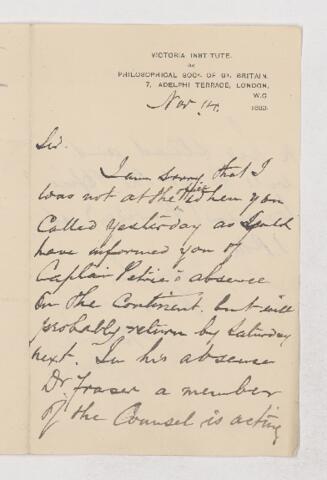 VICTORIA INSTITUTE.
OR
PHILOSOPHICAL SOCY. OF GT. BRITAIN.
7, ADELPHI TERRACE, LONDON,
W.C.
Nov 14. 1883.
Sir.
I am sorry that I
was not at the office when you
called yesterday as I could
have informed you of
Captain Petrie's absence
on the Continent. but will
probably return by Saturday
next. In his absence
Dr. Fraser a member
of the Counsel is acting